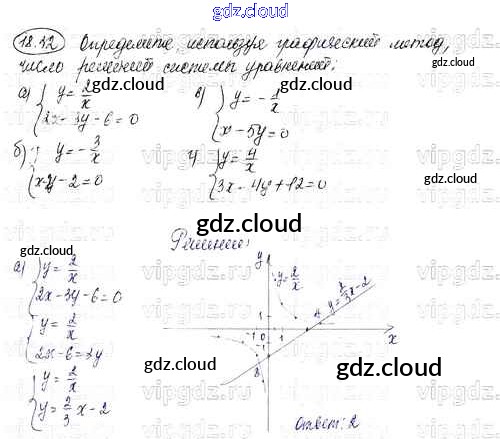 gdz.cloud
18.42 Определите, используя графический метод,
число решений системы уравнений:
а) { y = 2/x
2x - 3y - 6 = 0
в) { y = - 1/x
x - 5y = 0
б) { y = - 3/x
x - y - 2 = 0
г) { y = 4/x
3x - 4y + 12 = 0
gdz.cloud
gdz.cloud
gdz.cloud
gdz.cloud
Решение:
а) { y = 2/x
2x - 3y - 6 = 0
{ y = 2/x
2x - 6 = 3y
{ y = 2/x
y = 2/3 x - 2
y
y = 2/x
y = 2/3 x - 2
1
-1 0 1
-1
x
Ответ: 2
gdz.cloud
gdz.cloud
gdz.cloud
gdz.cloud